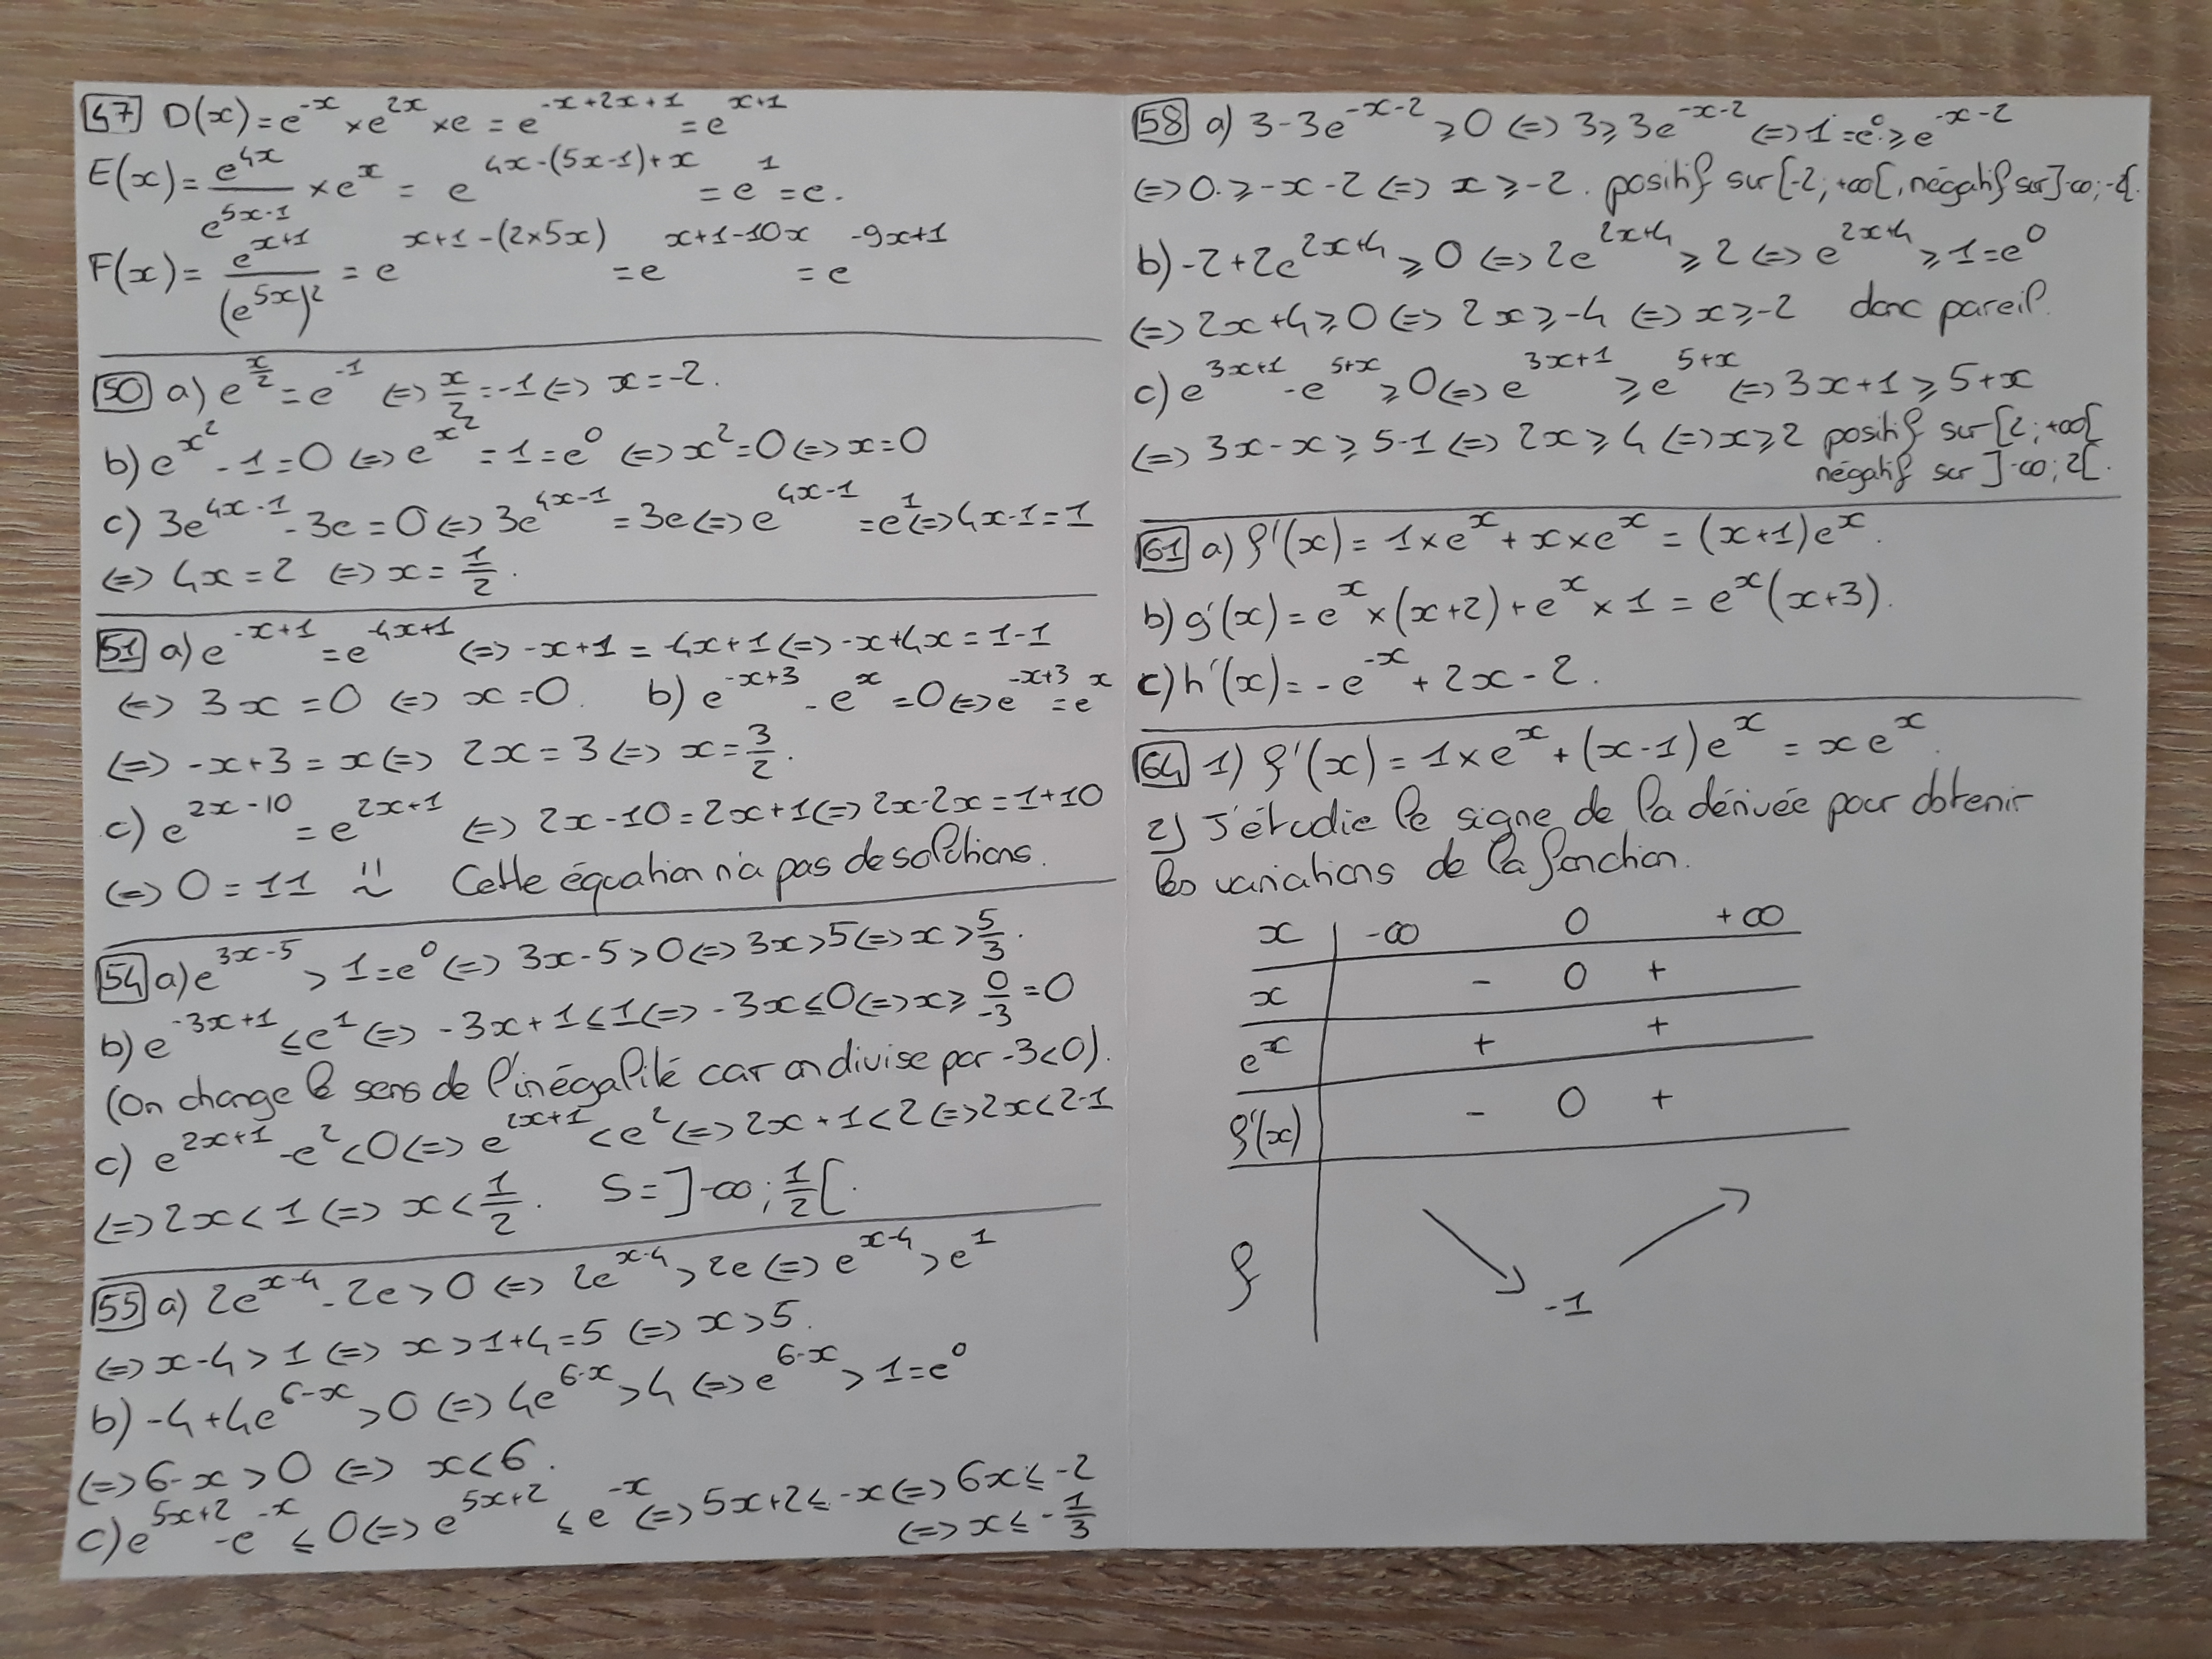 47 D(x) = e^{-x} × e^{2x} × e = e^{-x+2x+1} = e^{x+1}
E(x) = \frac{e^{4x}}{e^{5x-1}} × e^x = e^{4x-(5x-1)+x} = e^1 = e.
F(x) = \frac{e^{x+1}}{(e^{5x})^2} = e^{x+1-(2×5x)} = e^{x+1-10x} = e^{-9x+1}
50 a) e^{\frac{x}{2}} = e^{-1} (=) \frac{x}{2} = -1 (=) x = -2.
b) e^{x^2} - 1 = 0 (=) e^{x^2} = 1 = e^0 (=) x^2 = 0 (=) x = 0
c) 3e^{4x-1} - 3e = 0 (=) 3e^{4x-1} = 3e (=) e^{4x-1} = e^1 (=) 4x-1 = 1
(=) 4x = 2 (=) x = \frac{1}{2}.
51 a) e^{-x+1} = e^{-4x+1} (=) -x+1 = -4x+1 (=) -x+4x = 1-1
(=) 3x = 0 (=) x = 0. b) e^{-x+3} - e^x = 0 (=) e^{-x+3} = e^x
(=) -x+3 = x (=) 2x = 3 (=) x = \frac{3}{2}.
c) e^{2x-10} = e^{2x+1} (=) 2x-10 = 2x+1 (=) 2x-2x = 1+10
(=) 0 = 11 Cette équation n'a pas de solutions.
54 a) e^{3x-5} > 1 = e^0 (=) 3x-5 > 0 (=) 3x > 5 (=) x > \frac{5}{3}.
b) e^{-3x+1} ≤ e^1 (=) -3x+1 ≤ 1 (=) -3x ≤ 0 (=) x ≥ \frac{0}{-3} = 0
(On change le sens de l'inégalité car on divise par -3<0).
c) e^{2x+1} - e^2 < 0 (=) e^{2x+1} < e^2 (=) 2x+1 < 2 (=) 2x < 2-1
(=) 2x < 1 (=) x < \frac{1}{2}. S = ]-∞; \frac{1}{2}[.
55 a) 2e^{x-4} - 2e > 0 (=) 2e^{x-4} > 2e (=) e^{x-4} > e^1
(=) x-4 > 1 (=) x > 1+4 = 5 (=) x > 5.
b) -4 + 4e^{6-x} > 0 (=) 4e^{6-x} > 4 (=) e^{6-x} > 1 = e^0
(=) 6-x > 0 (=) x < 6.
c) e^{5x+2} - e^{-x} ≤ 0 (=) e^{5x+2} ≤ e^{-x} (=) 5x+2 ≤ -x (=) 6x ≤ -2
(=) x ≤ -\frac{1}{3}
58 a) 3 - 3e^{-x-2} ≥ 0 (=) 3 ≥ 3e^{-x-2} (=) 1 = e^0 ≥ e^{-x-2}
(=) 0 ≥ -x-2 (=) x ≥ -2. positif sur [-2; +∞[, négatif sur ]-∞; -2[.
b) -2 + 2e^{2x+4} ≥ 0 (=) 2e^{2x+4} ≥ 2 (=) e^{2x+4} ≥ 1 = e^0
(=) 2x+4 ≥ 0 (=) 2x ≥ -4 (=) x ≥ -2 donc pareil.
c) e^{3x+1} - e^{5+x} ≥ 0 (=) e^{3x+1} ≥ e^{5+x} (=) 3x+1 ≥ 5+x
(=) 3x-x ≥ 5-1 (=) 2x ≥ 4 (=) x ≥ 2 positif sur [2; +∞[
négatif sur ]-∞; 2[.
61 a) f'(x) = 1×e^x + x×e^x = (x+1)e^x.
b) g'(x) = e^x × (x+2) + e^x × 1 = e^x(x+3).
c) h'(x) = -e^{-x} + 2x - 2.
64 1) f'(x) = 1×e^x + (x-1)e^x = x e^x.
2) J'étudie le signe de la dérivée pour obtenir
les variations de la fonction.
x -∞ 0 +∞
x - 0 +
e^x + +
f'(x) - 0 +
f ↘ -1 ↗